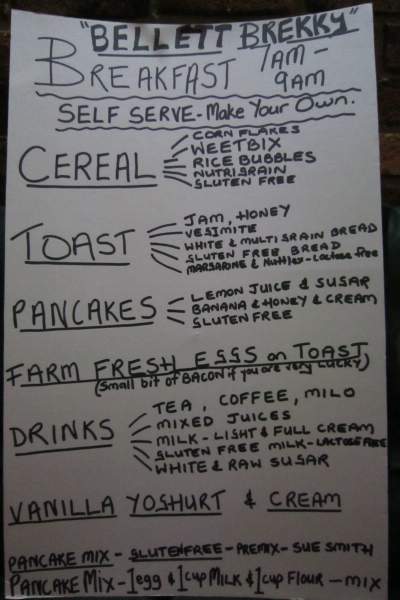 "BELLETT BREKKY"
BREAKFAST 7AM - 9AM
SELF SERVE - Make Your Own.
CEREAL
CORN FLAKES
WEETBIX
RICE BUBBLES
NUTRIGRAIN
GLUTEN FREE
TOAST
JAM, HONEY
VEGIMITE
WHITE & MULTI GRAIN BREAD
GLUTEN FREE BREAD
MARGARINE & Nuttlex - Lactose free
PANCAKES
LEMON JUICE & SUGAR
BANANA & HONEY & CREAM
GLUTEN FREE
FARM FRESH EGGS on TOAST
(Small bit of BACON if you are very LUCKY)
DRINKS
TEA, COFFEE, MILO
MIXED JUICES
MILK - LIGHT & FULL CREAM
GLUTEN FREE MILK - LACTOSE FREE
WHITE & RAW SUGAR
VANILLA YOGHURT & CREAM
PANCAKE MIX - GLUTENFREE - PREMIX - SUE SMITH
PANCAKE MIX - 1 egg & 1 cup MILK & 1 cup FLOUR - MIX